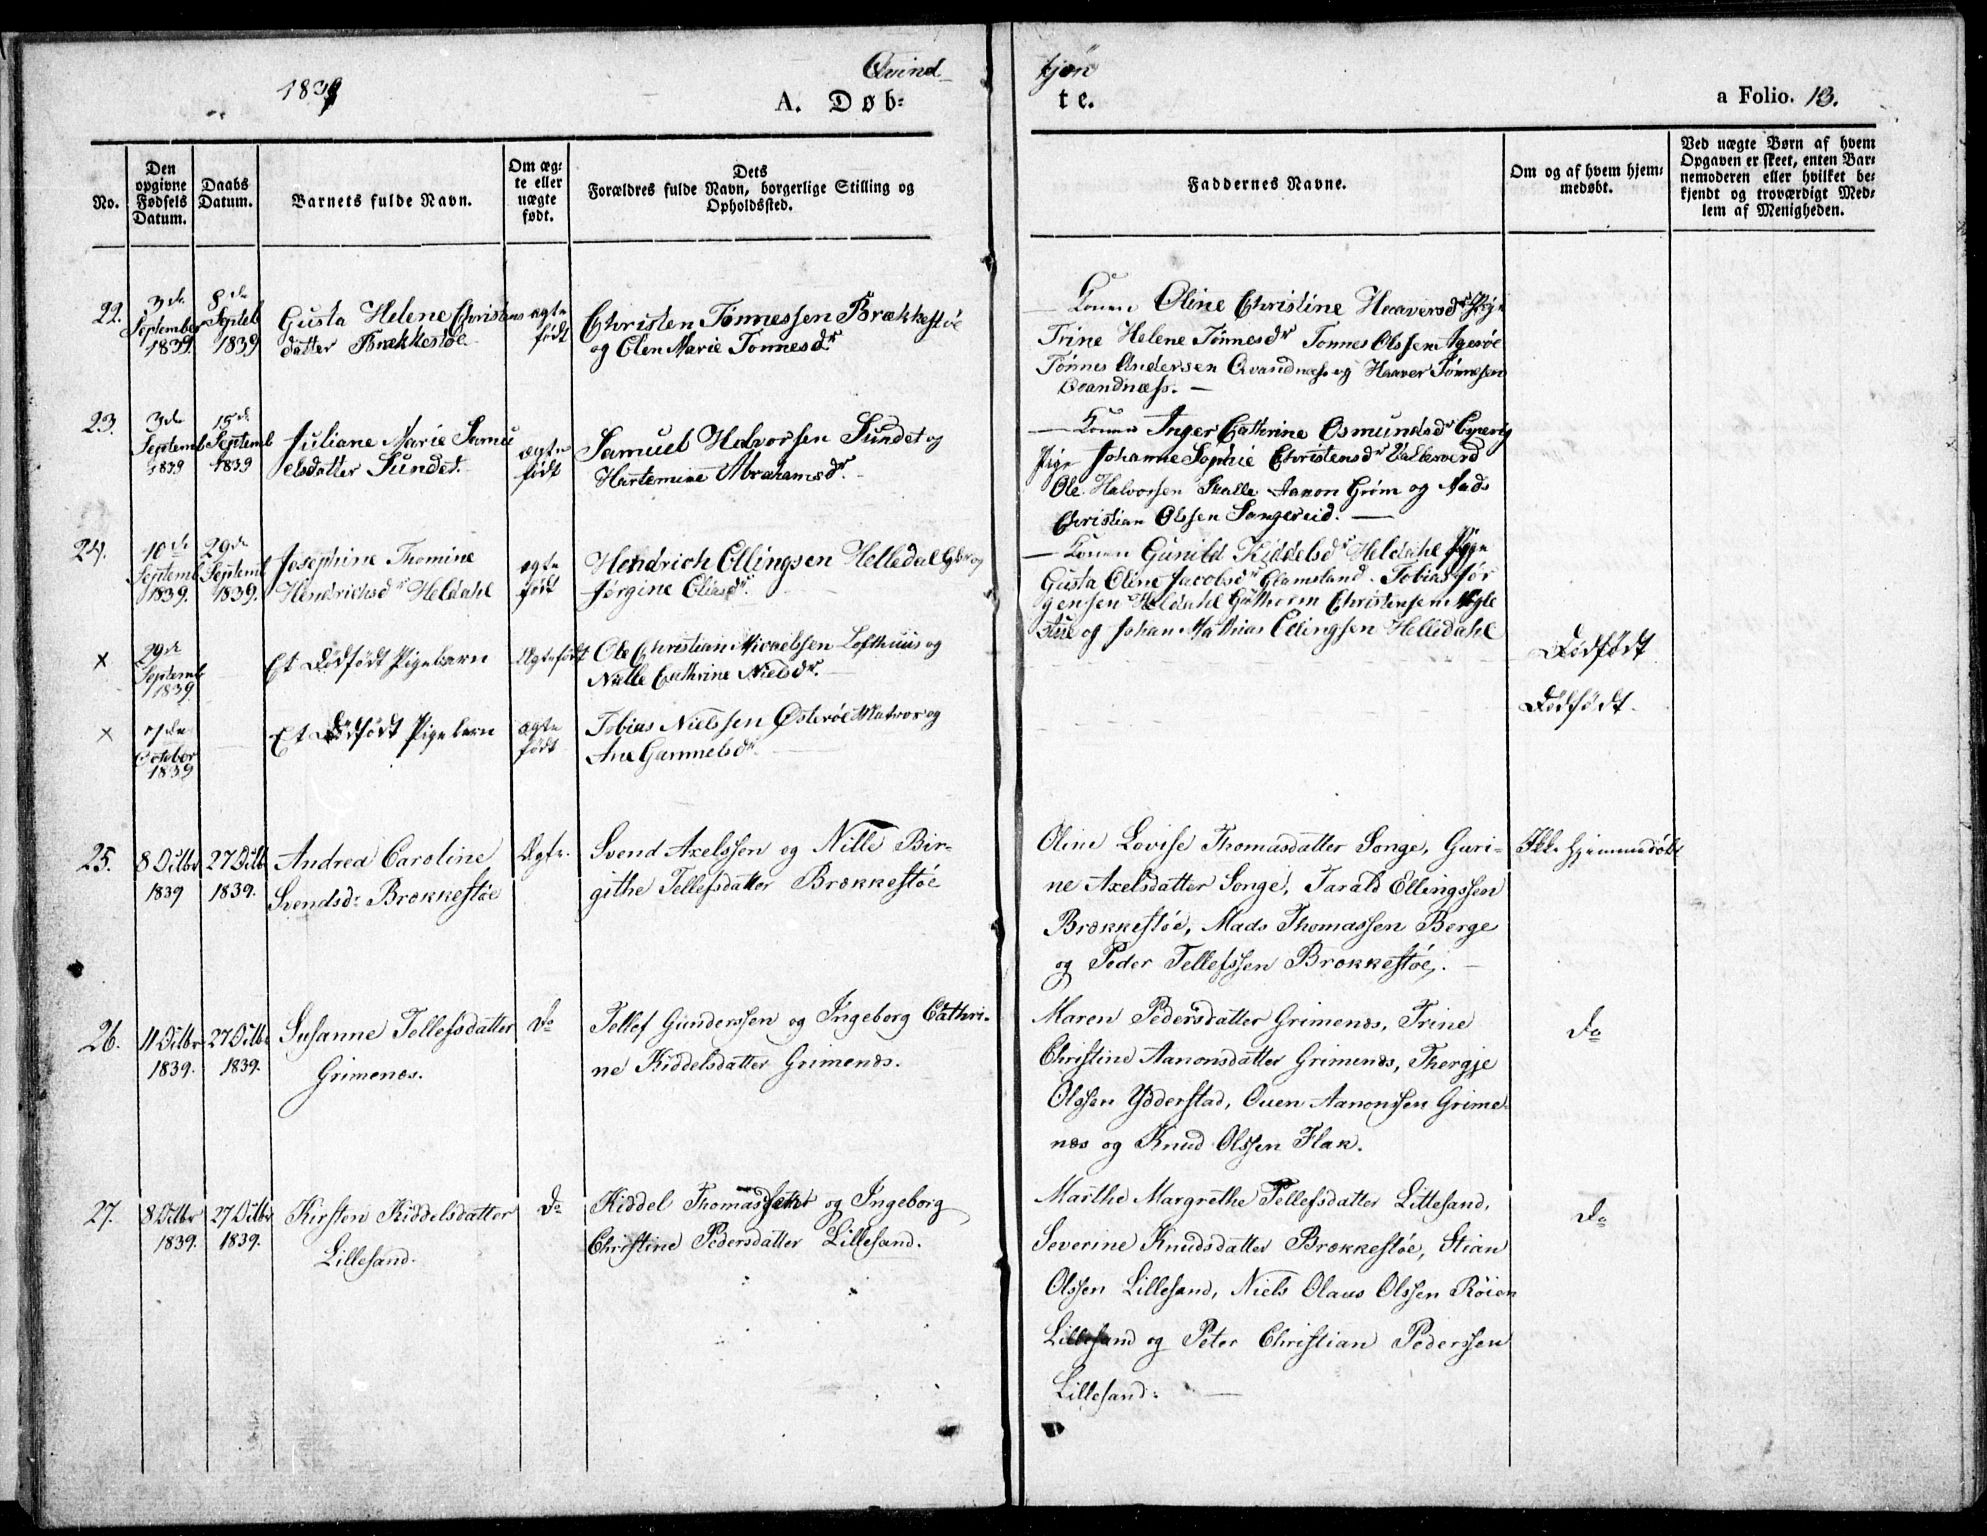 1839
Qvind-
kjøn
A. Døb-
te.
a Folio. 13.
No.
Den opgivne Fødsels Datum.
Daabs Datum.
Barnets fulde Navn.
Om æg-te eller uægte født.
Dets Forældres fulde Navn, borgerlige Stilling og Opholdssted.
Faddernes Navne.
Om og af hvem hjem-medøbt.
Ved uægte Børn af hvem Opgaven er skeet, enten Bar-nemoderen eller hvilket be-kjendt og troværdigt Med-lem af Menigheden.
22. 3de September 1839 8de Septeb 1839
Gusta Helene Christens
datter Brækkestøe
ægte født
Christen Tønnessen Brækkestøe
og Olen Marie Tønnesdr
Konen Oline Christine Haaversdr
Trine Helene Tønnesdr Tønnes Olssen Agerøe
Tønnes Andersen Qvandnæss og Haaver Tønnesen
Qvandnæss. —
23. 3de Septemb 1839 15de Septemb 1839
Juliane Marie Samu
elsdatter Sundet.
ægte født
Samuel Halvorsen Sundet og
Hartemine Abrahamsdr.
— Konen Inger Cathrine Osmundsdr
Pige Johanne Sophie Christensdr Vallesverd
Ole Halvorsen Skalle Aanon Grøm og Mads
Christian Olssen Sangereid. —
24. 10de Septemb 1839. 29de Septemb 1839.
Josephine Thomine
Hendrichsdr Heldahl
ægte født
Hendrich Ellingsen Helledal Gbr og
Jørgine Eliasdr.
— Konen Gunild Kiddelsdr Heldahl Pige
Gusta Oline Jacobsdr Glamsland. Tobias Jør
gensen Heldahl Guthorm Christensen
og Johan Mathias Ellingsen Helledahl
x 29de Septemb 1839
Et Dødfødt Pigebarn
Ægtefødt
Ole Christian Micaelssen Lofthuus og
Nille Cathrine Nielsdr.
Dødfødt
x October 1839
Et Dødfødt Pigebarn
ægte født
Tobias Nielssen Østerøe Matros og
Ane Gammelsdr.
Dødfødt.
25. 8 Octbr 1839 27 Octbr 1839.
Andrea Caroline
Svendsdr Brækkestøe
Ægte.
Svend Axelssen og Nille Bir-
githe Tellefsdatter Brækkestøe
Oline Lovise Thomasdatter Songe, Guri-
ne Axelsdatter Songe, Tarald Ellingssen
Brækkestøe, Mads Thomassen Berge
og Peder Tellefssen Brækkestøe. —
Ikke hjemmedøbt
26. 11 Octbr 1839. 27 Octbr 1839.
Susanne Tellefsdatter
Grimenæs.
Do
Tellef Gunderssen og Ingeborg Cathri-
ne Kiddelsdatter Grimenæs.
Maren Pedersdatter Grimenæs, Trine
Christine Aanonsdatter Grimenæs, Thergje
Olssen Ydderstad, Ouen Aanonssen Grime-
næs og Knud Olssen Flak.
Do
27. 8 Octbr 1839. 27 Octbr 1839.
Kirsten Kiddelsdatter
Lillesand.
Do
Kiddel Thomassen og Ingeborg
Christine Pedersdatter Lillesand.
Marthe Margrethe Tellefsdatter Lillesand,
Severine Knudsdatter Brækkestøe, Stian
Olssen Lillesand, Niels Olaus Olssen Røien
Lillesand og Peter Christian Pederssen
Lillesand. —
Do